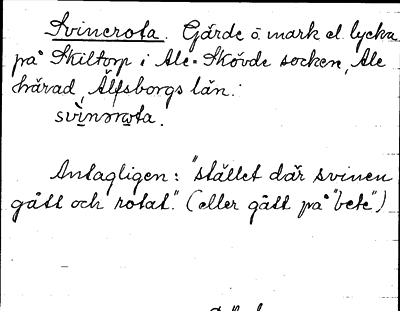 Svinerota. Gärde å mark el. lycka
på Skiltorp i Ale-Skövde socken, Ale
härad, Älfsborgs län.
svi̱norɷta.
Antagligen: "stället där svinen
gått och rotat". (eller gått på "bete")